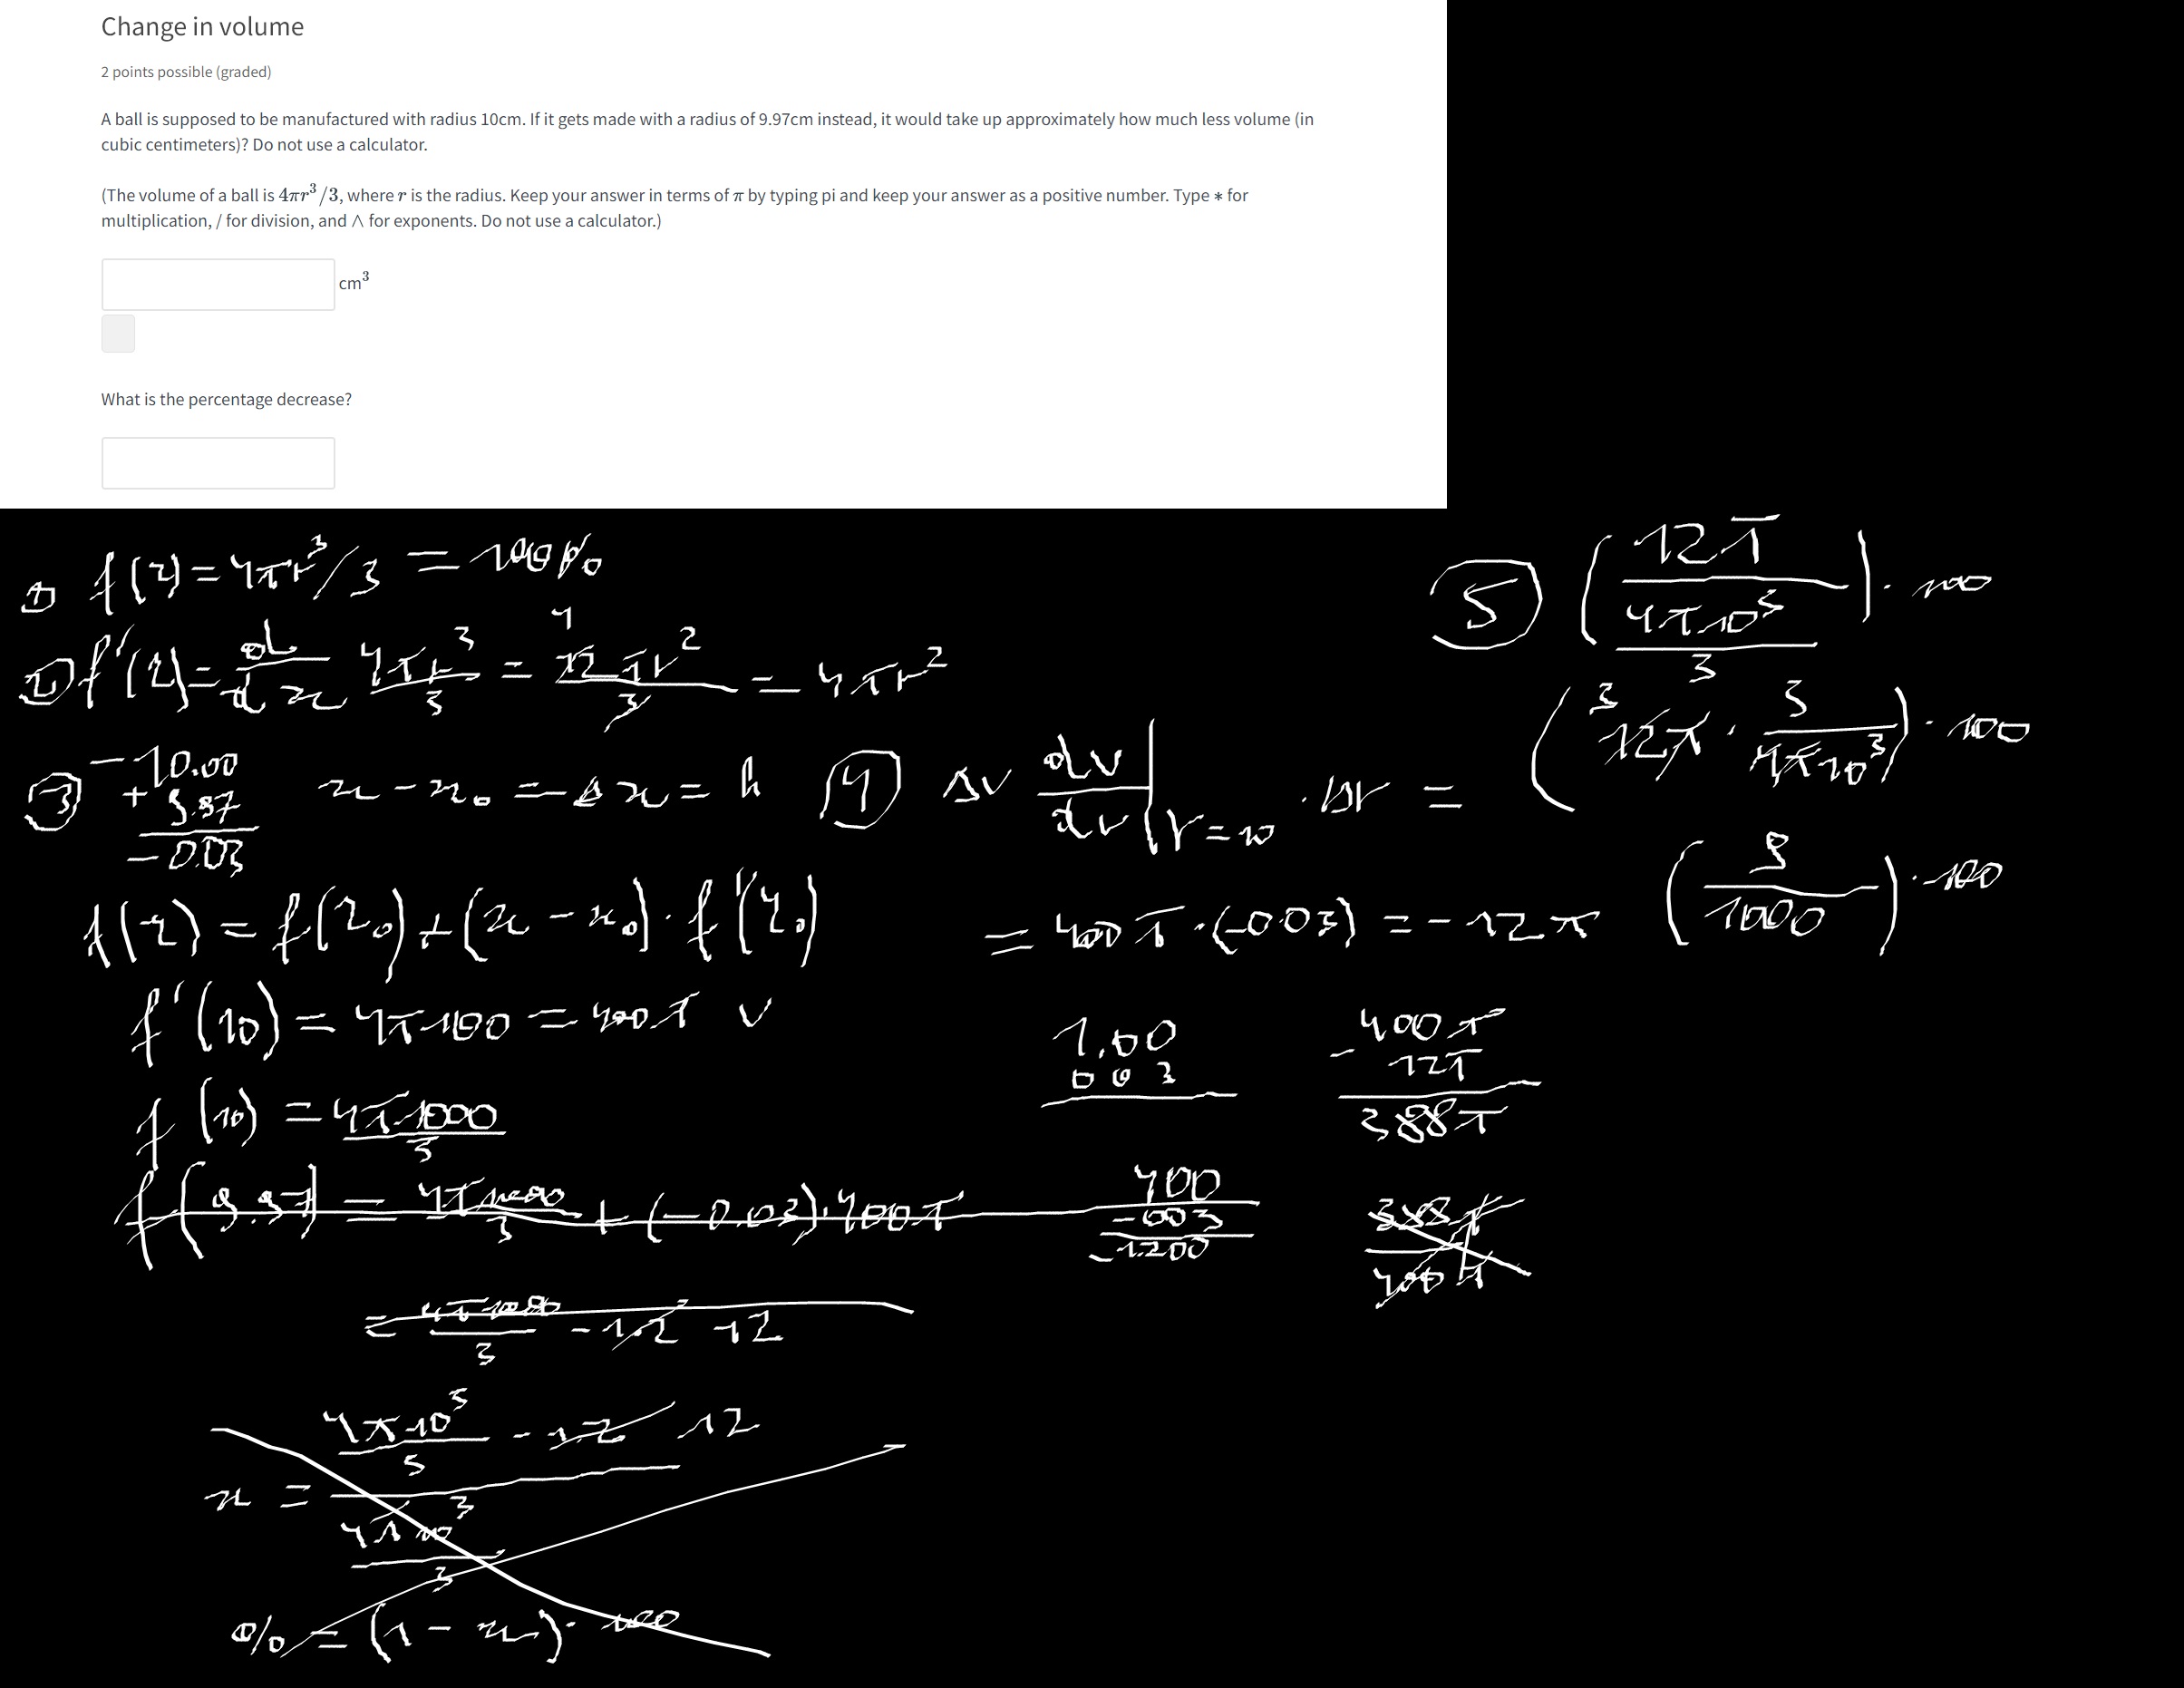 Change in volume
2 points possible (graded)
A ball is supposed to be manufactured with radius 10cm. If it gets made with a radius of 9.97cm instead, it would take up approximately how much less volume (in
cubic centimeters)? Do not use a calculator.
(The volume of a ball is 4πr³/3, where r is the radius. Keep your answer in terms of π by typing pi and keep your answer as a positive number. Type * for
multiplication, / for division, and ∧ for exponents. Do not use a calculator.)
cm³
What is the percentage decrease?
① f(x) = 4πr³/3 = 100%
② f'(x) = d/dx 4πr³/3 = 12πr²/3 = 4πr²
4
③ - 10.00
+ 9.97
- 0.03
x - x₀ = Δx = h
④ ΔV dV/dr | r=10 · Δr =
= 400π · (-0.03) = -12π
f(x) = f(x₀) + (x - x₀) · f'(x₀)
f'(10) = 4π·100 = 400π v
f(10) = 4π·1000/3
f(9.97) = 4π·1000/3 + (-0.03)·400π
400
-003
-1200
= 4π·1000/3 - 1.2 12
x = (4π·10³/3 - 1.2 12) / (4π·10³/3)
% = (1 - x) · 100
1.00
003
400π
- 12π
388π
388π/400π
⑤ (12π / (4π·10³/3)) · 100
(12π · 3/4π10³) · 100
3
(9/1000) · 100